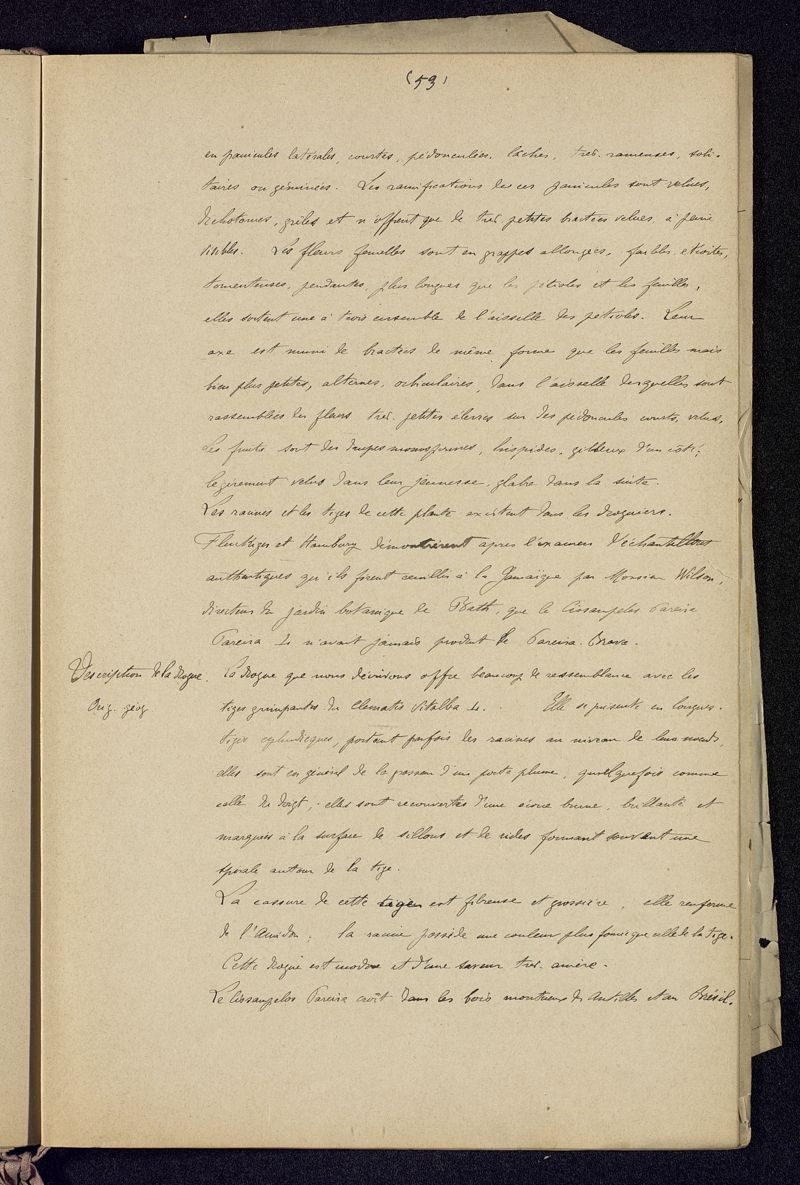 (53)
en panicules latérales, courtes, pédonculées, lâches, très rameuses, soli-
taires ou géminées. Les ramifications de ces panicules sont velues,
dichotomes, grêles et n'offrent que de très petites bractées velues, à peine
visibles. Les fleurs femelles sont en grappes allongées, faibles, étroites,
tomenteuses, pendantes, plus longues que les pétioles et les feuilles,
elles sortent une à trois ensemble de l'aisselle des pétioles. Leur
axe est muni de bractées de même forme que les feuilles mais
bien plus petites, alternes, orbiculaires, dans l'aisselle desquelles sont
rassemblées des fleurs très petites élevées sur des pédoncules courts, velus.
Les fruits sont des drupes monospermes, hispides, gibbeux d'un côté,
légèrement velus dans leur jeunesse, glabre dans la suite.
Les racines et les tiges de cette plante existent dans les droguiers.
Flückiger et Hanbury démontrèrent après l'examen d'échantillons
authentiques qu'ils firent cueillir à la Jamaïque par Monsieur Wilson,
directeur du jardin botanique de Bath, que le Cissampelos Pareira
Pareira L. n'avait jamais produit le Pareira-Brava.
Description de la drogue.
Orig. géog.
La drogue que nous décrivons offre beaucoup de ressemblance avec les
tiges grimpantes du Clematis Vitalba L. Elle se présente en longues
tiges cylindriques, portant parfois des racines au niveau de leurs nœuds,
elles sont en général de la grosseur d'un porte plume, quelquefois comme
celle du doigt, elles sont recouvertes d'une écorce brune, brillante et
marquées à la surface de sillons et de rides formant souvent une
spirale autour de la tige.
La cassure de cette tige est fibreuse et grossière, elle renferme
de l'amidon. La racine possède une couleur plus foncée que celle de la tige.
Cette drogue est inodore et d'une saveur très amère.
Le Cissampelos Pareira croît dans les bois montueux des Antilles et au Brésil.